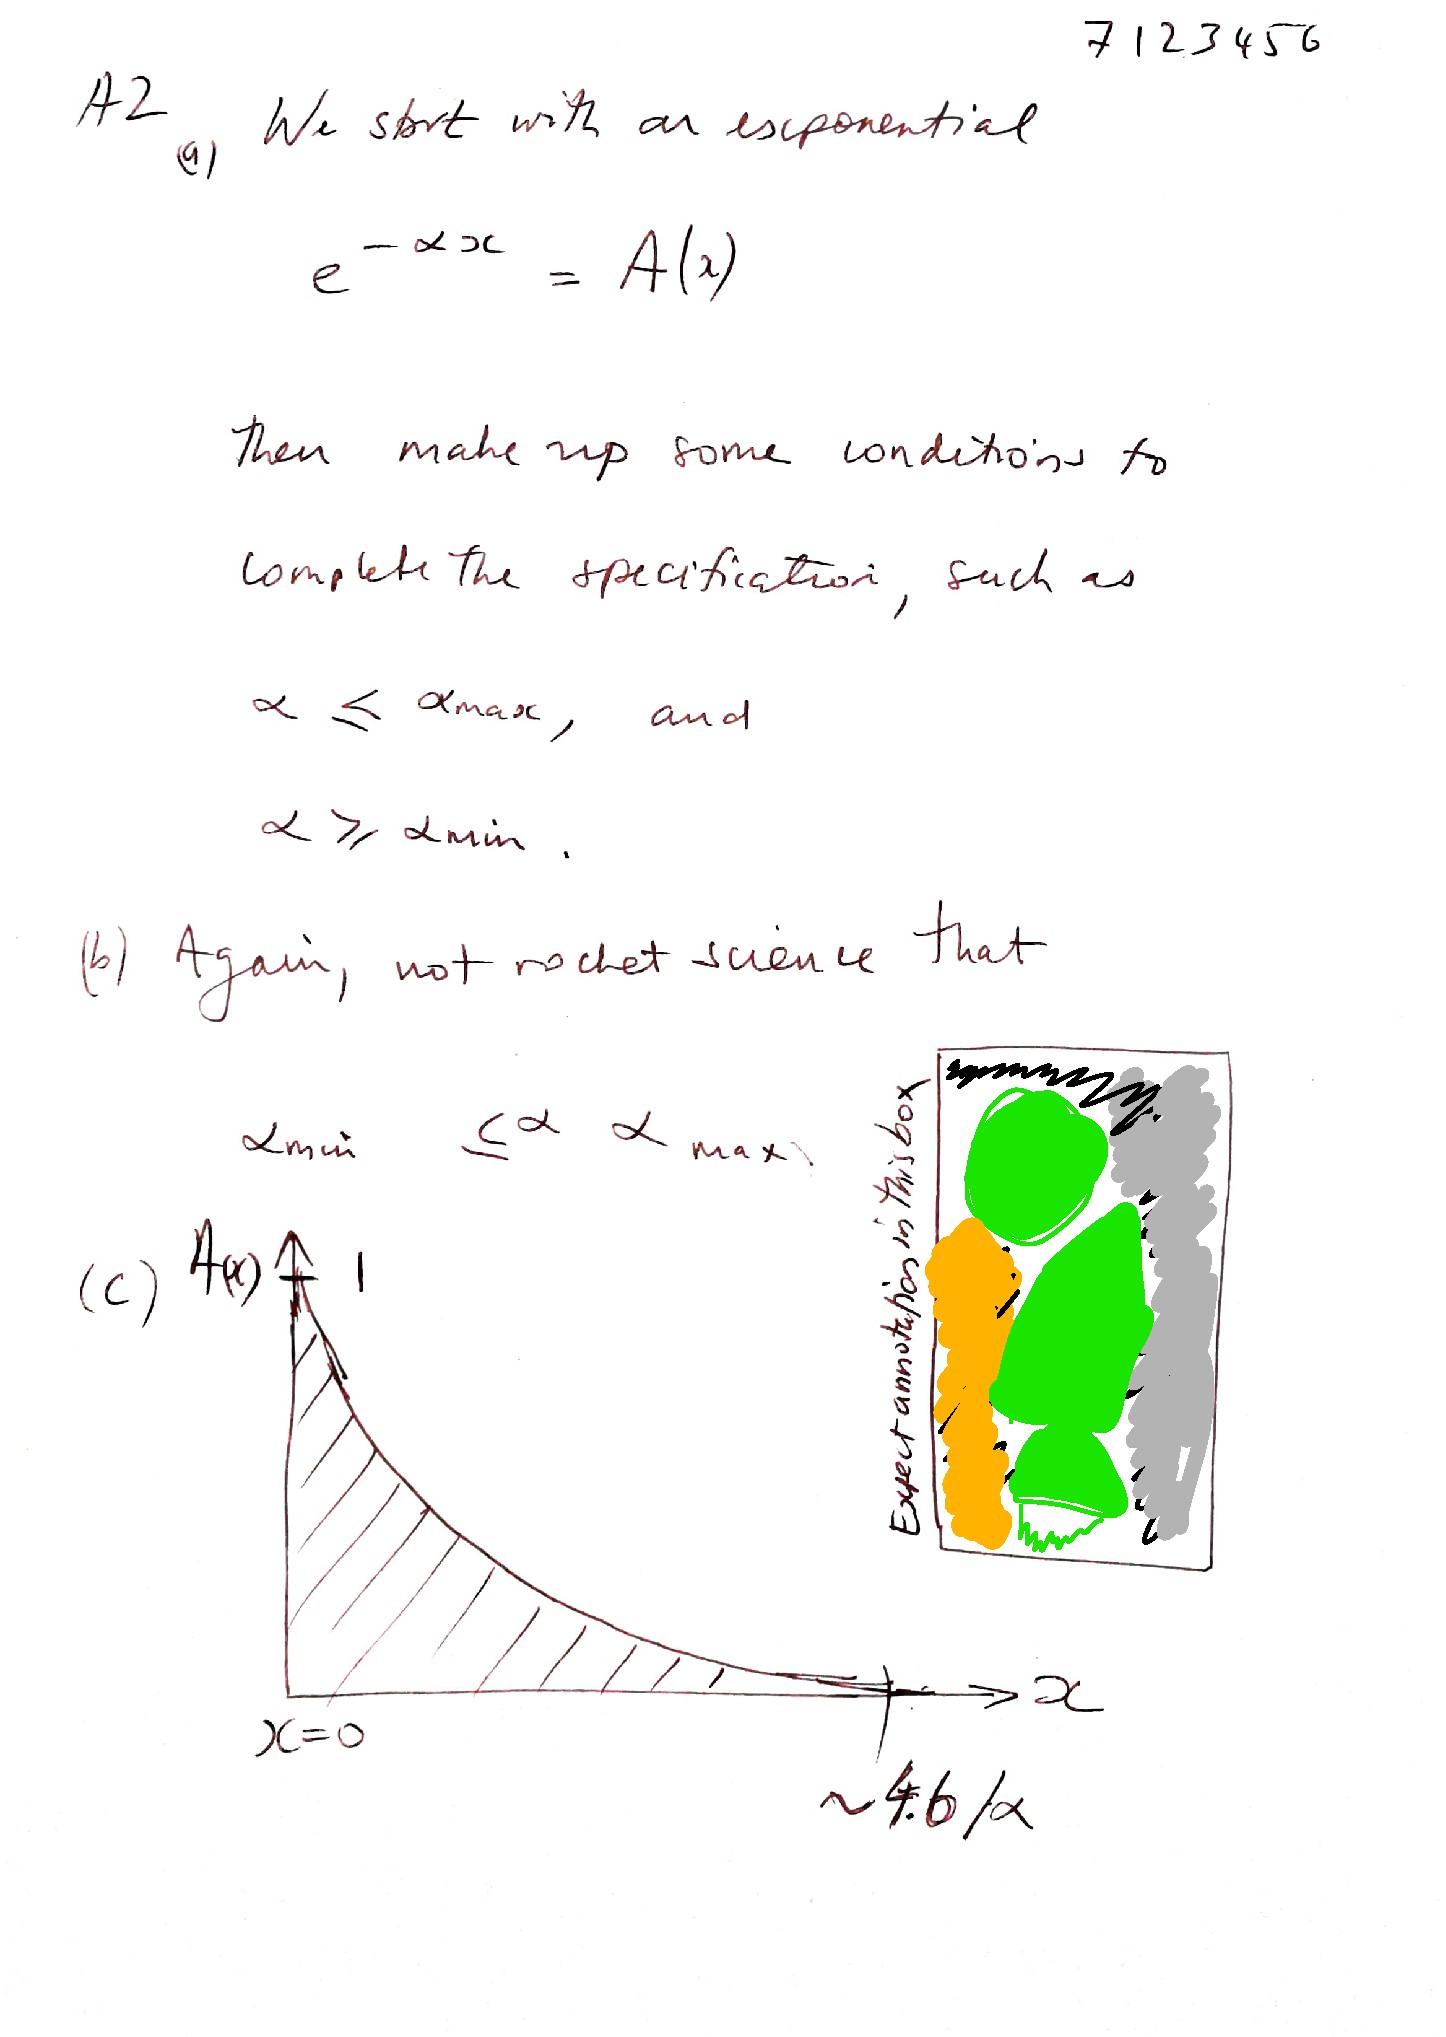 7123456
A2
(a) We start with an exponential
e^{-αx} = A(x)
then make up some conditions to
complete the specification, such as
α ≤ αmax, and
α ≥ αmin.
(b) Again, not rocket science that
αmin ≤ α α max.
Expect annotations in this box
(c) A(x) 1
x
x=0
~4.6/α